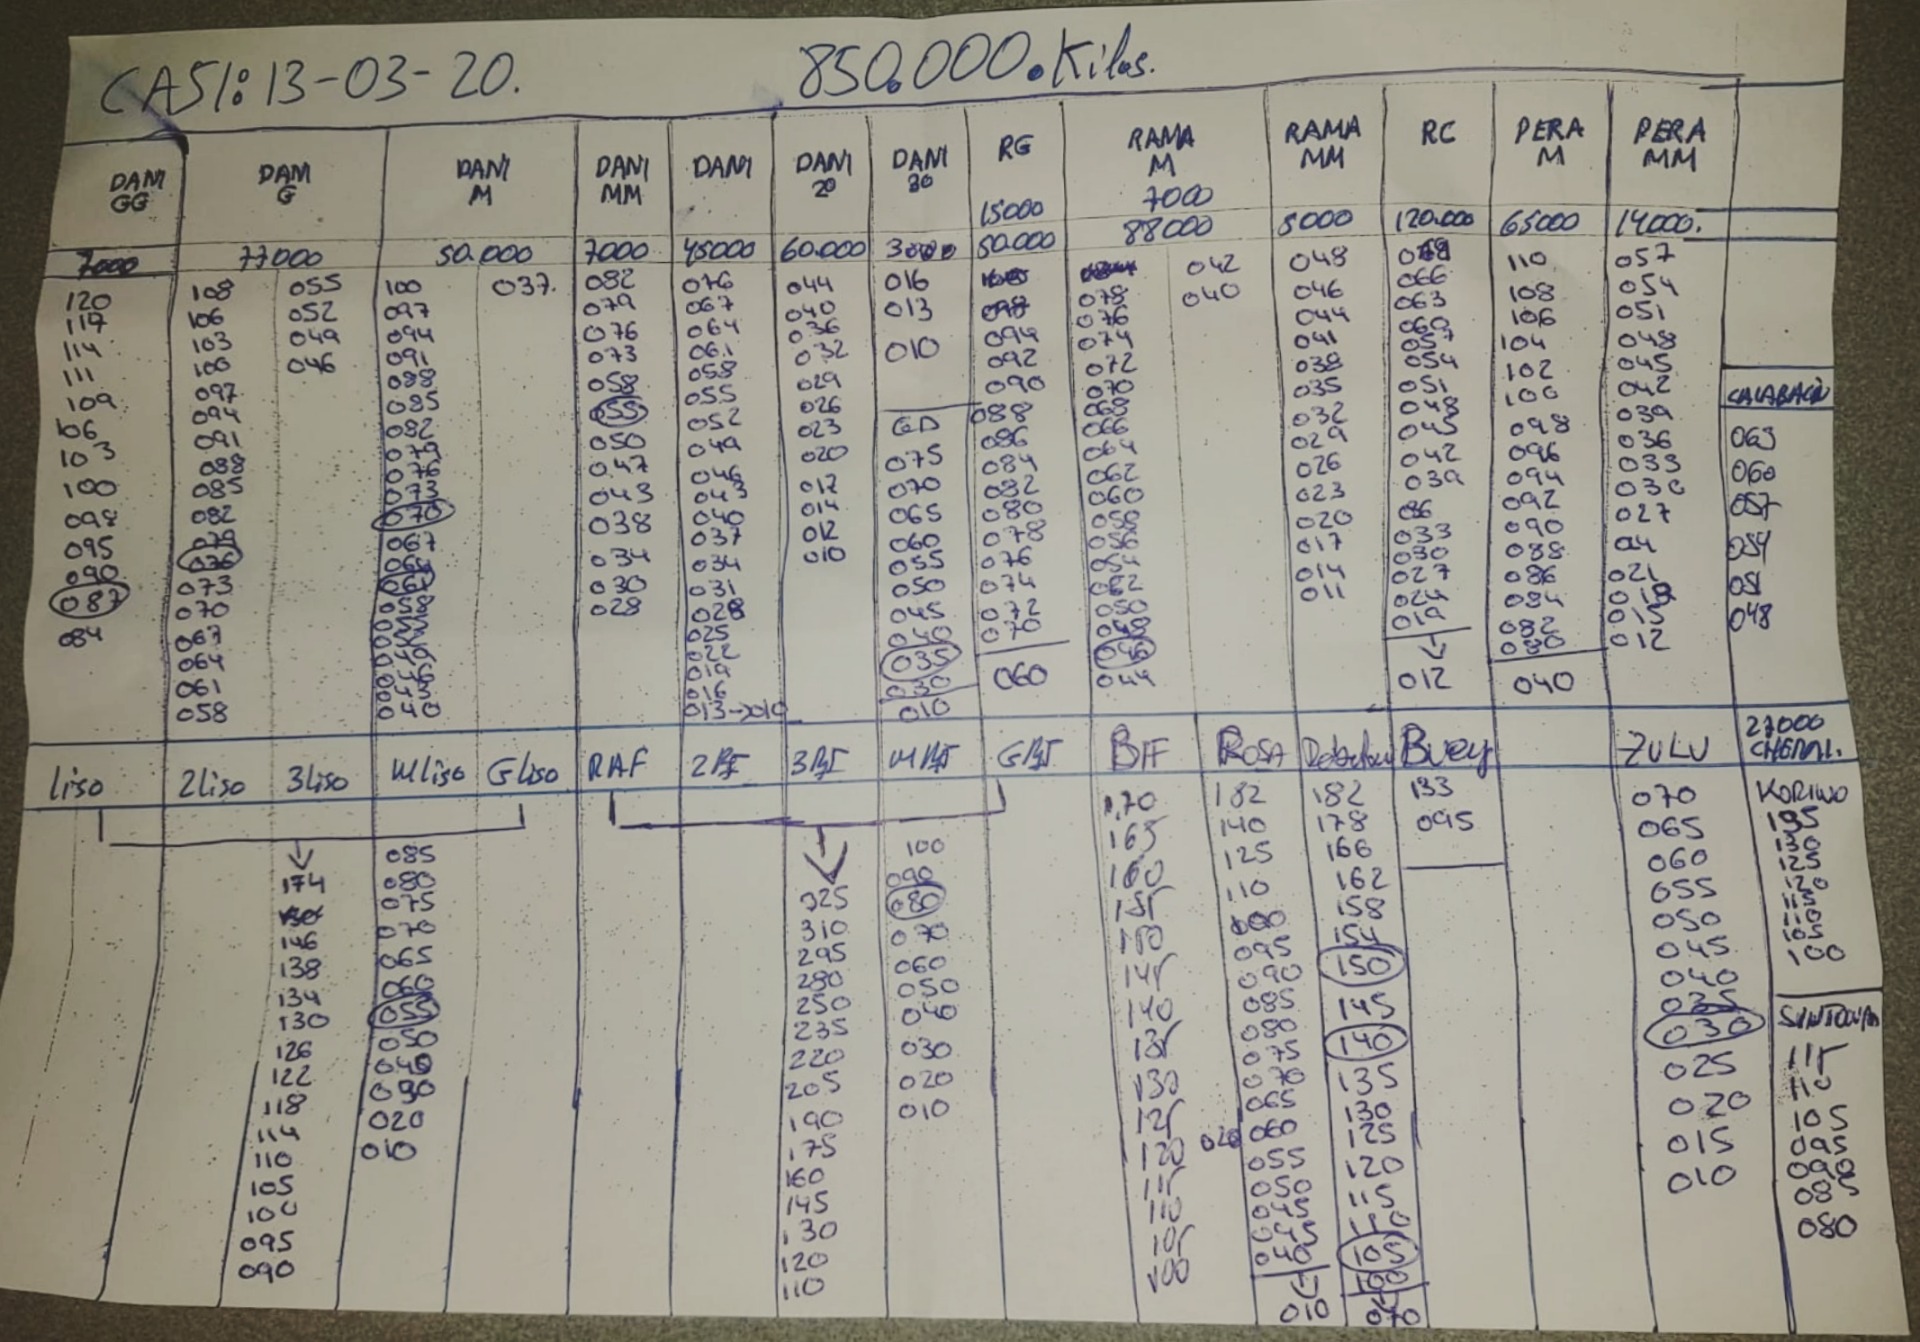 CASI: 13-03-20. 850.000.Kilos.
DANI GG
7000
120
117
114
111
109
106
103
100
098
095
090
087
084
DANI G
77000
108
106
103
100
097
094
091
088
085
082
076
073
070
067
064
061
058
055
052
049
046
DANI M
50.000
100
097
094
091
088
085
082
079
076
073
070
067
058
040
037.
DANI MM
7000
082
079
076
073
058
055
050
047
043
038
034
030
028
DANI
45000
076
067
064
061
058
055
052
049
046
043
040
037
034
031
028
025
022
019
016
013->010
DANI 20
60.000
044
040
036
032
029
026
023
020
017
014
012
010
DANI 30
016
013
010
GD
075
070
065
060
055
050
045
040
035
030
010
RG
15000
50.000
098
094
092
090
088
086
084
082
080
078
076
074
072
070
060
RAMA M
7000
88000
078
076
074
072
070
068
066
064
062
060
058
056
054
052
050
048
046
044
042
040
RAMA MM
5000
048
046
044
041
038
035
032
029
026
023
020
017
014
011
RC
120.000
066
063
060
057
054
051
048
045
042
039
036
033
030
027
024
019
012
PERA M
65000
110
108
106
104
102
100
098
096
094
092
090
088
086
084
082
080
040
PERA MM
14000.
057
054
051
048
045
042
039
036
033
030
027
24
021
018
015
012
CALABACIN
063
060
057
054
051
048
liso 2liso 3liso Mliso Gliso
174
146
138
134
130
126
122
118
114
110
105
100
095
090
085
080
075
070
065
060
055
050
040
030
020
010
RAF 2RF 3RF MRF GRF
325
310
295
280
250
235
220
205
190
175
160
145
130
120
110
100
090
080
070
060
050
040
030
020
010
BFF
170
165
160
155
150
145
140
135
130
125
120
115
110
105
100
ROSA
182
140
125
110
100
095
090
085
080
075
070
065
020 060
055
050
045
040
010
182
178
166
162
158
154
150
145
140
135
130
125
120
115
110
105
100
070
Buey
133
095
ZULU
070
065
060
055
050
045
040
035
030
025
020
015
010
27000
KORINO
135
130
125
120
115
110
105
100
115
110
105
095
090
085
080